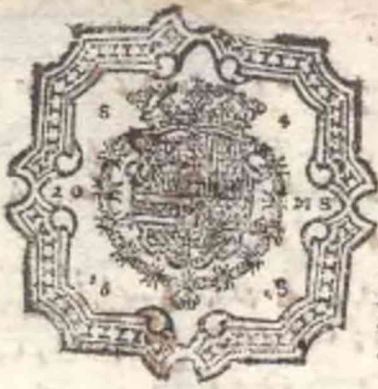 S 4
20 MS
16 S